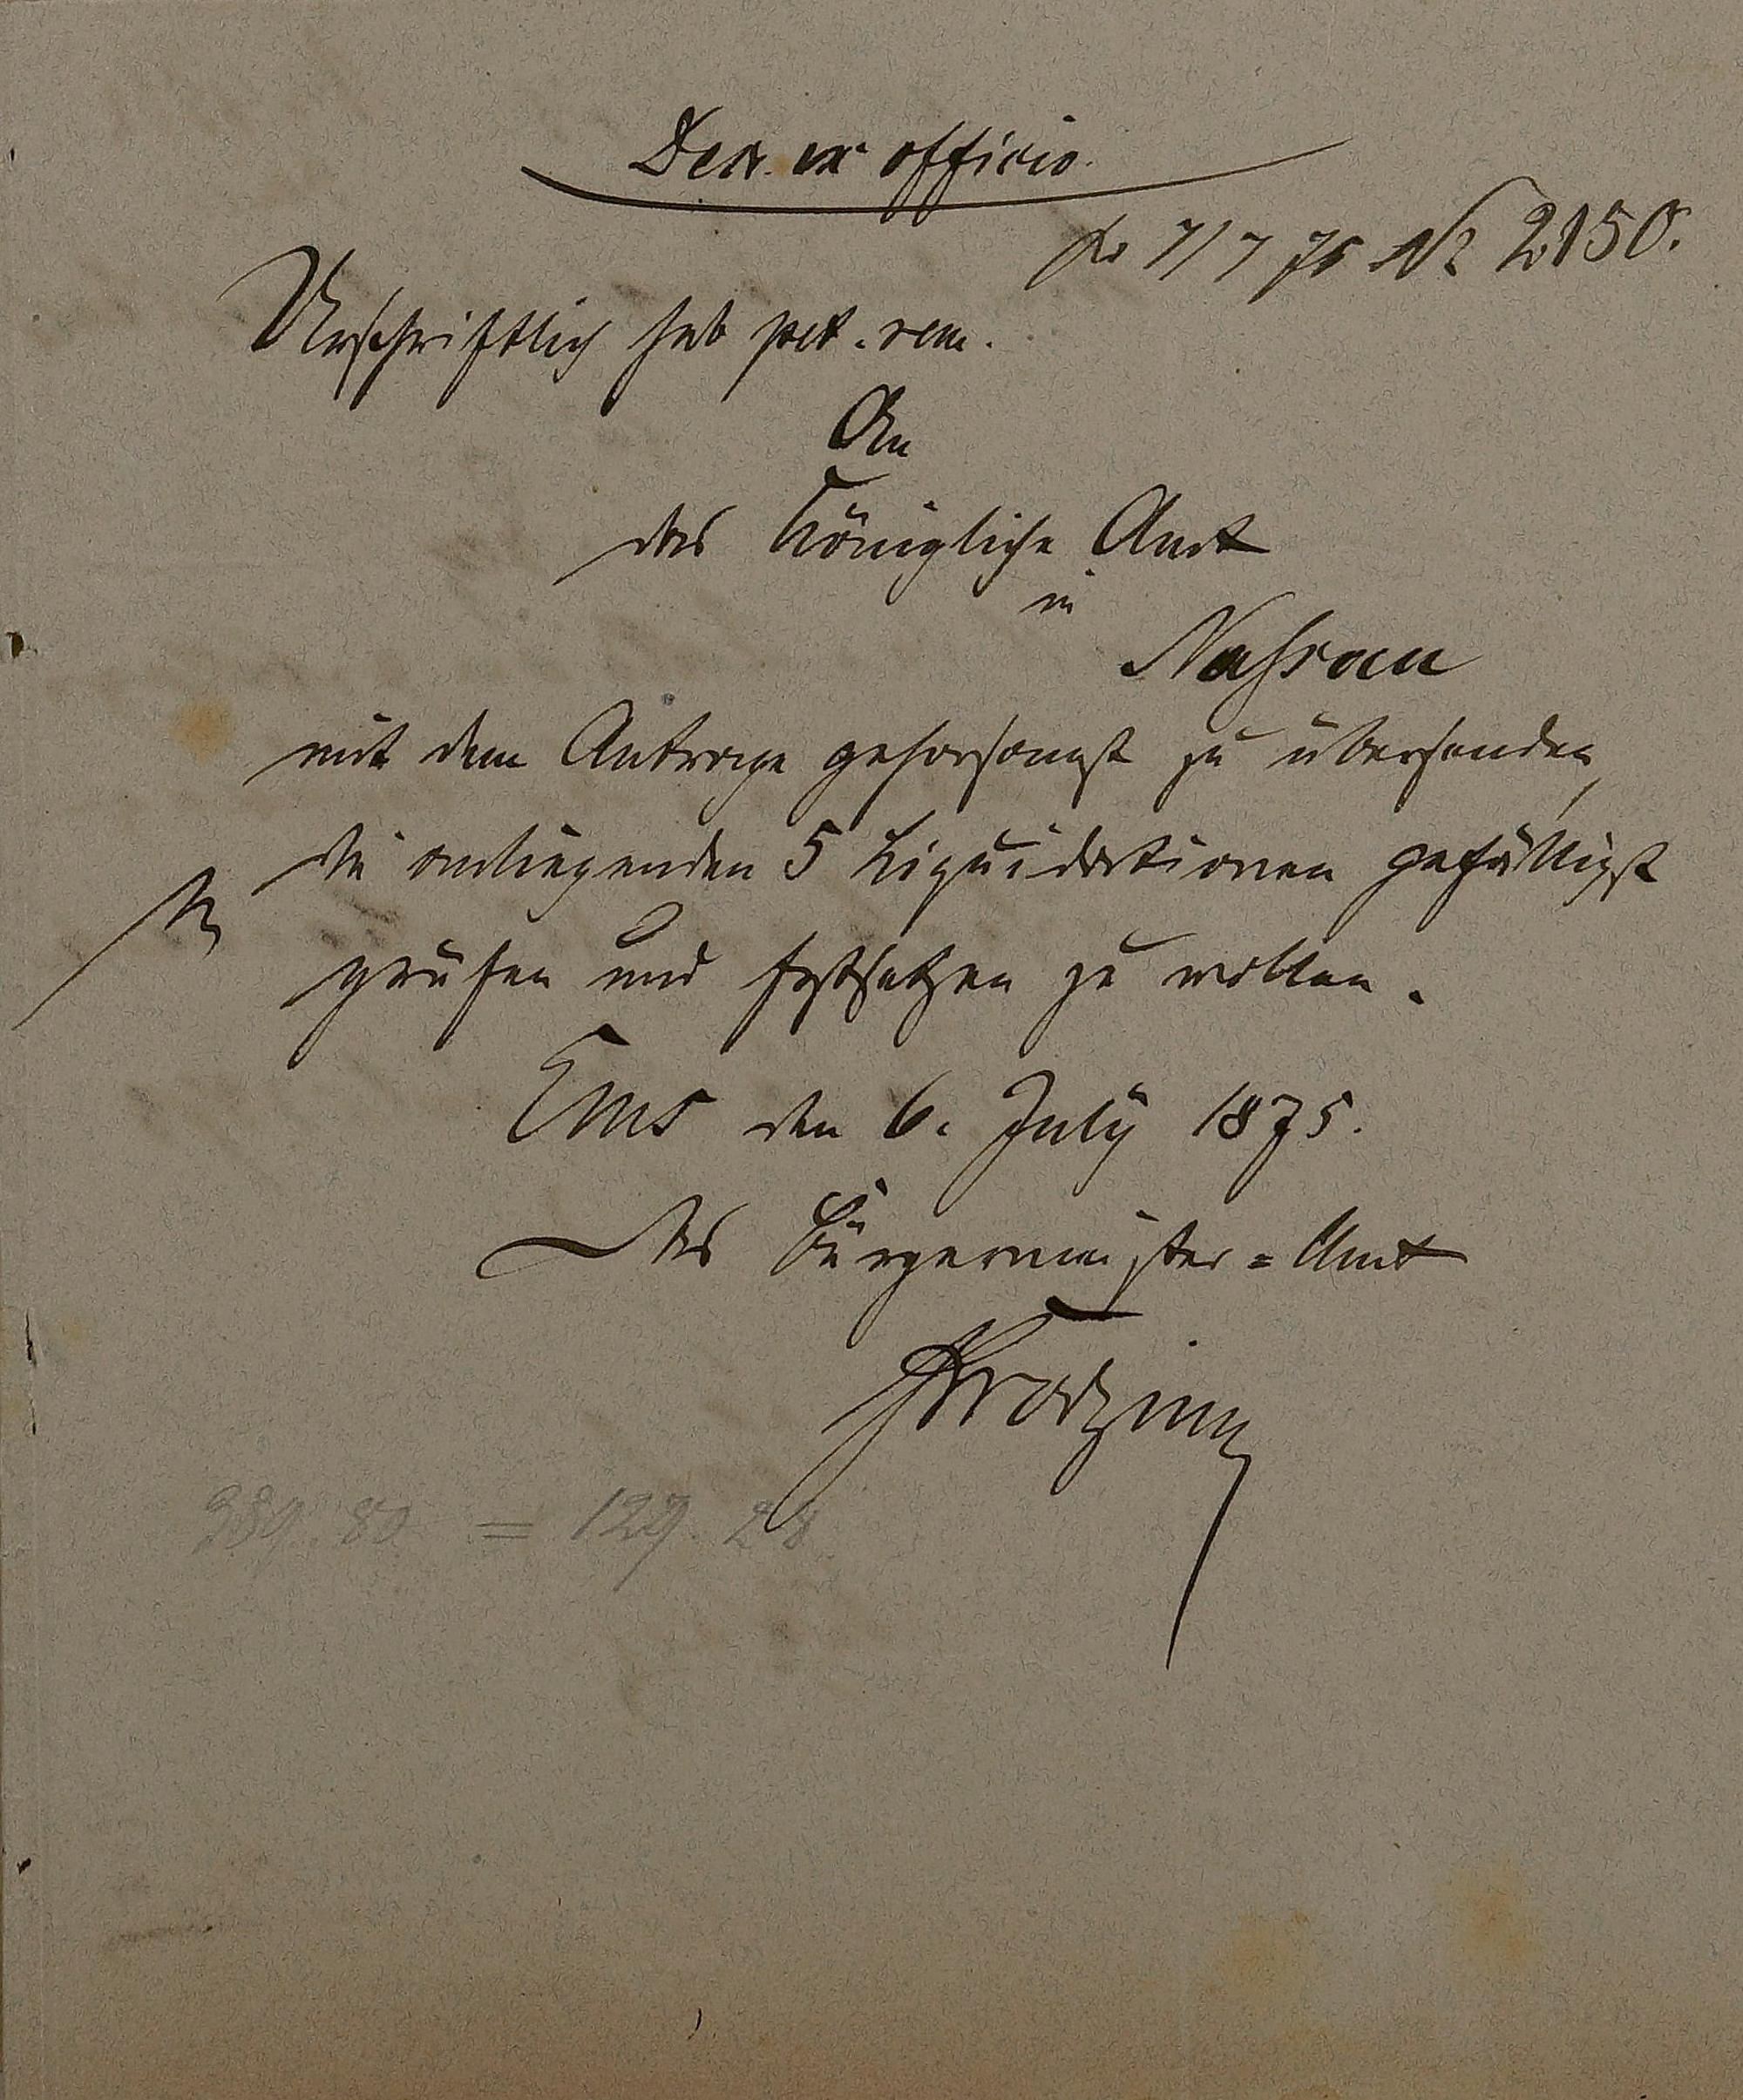 Decr. ex officio.
pr 7/7 75 № 2150.
Urschriftlich sub pet. rem.
An
das Königliche Amt
in
Nassau
mit dem Antrage gehorsamst zu übersenden,
die anliegenden 5 Liquidationen gefälligst
prüfen und festsetzen zu wollen.
Ems den 6. July 1875.
Das Bürgermeister=Amt
= 129. 28